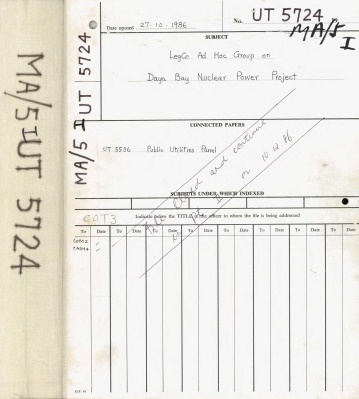 MA/5 I UT 5724
MA/5 I UT 5724
Date opened 27-10-1986
No. UT 5724
MA/5
I
SUBJECT
LegCo Ad Hoc Group on
Daya Bay Nuclear Power Project
CONNECTED PAPERS
UT 5536 Public Utilities Panel
File closed and continued
on 10.12.86
SUBJECTS UNDER WHICH INDEXED
Indicate below the TITLE of the officer to whom the file is being addressed
To Date To Date To Date To Date To Date To Date To Date To Date